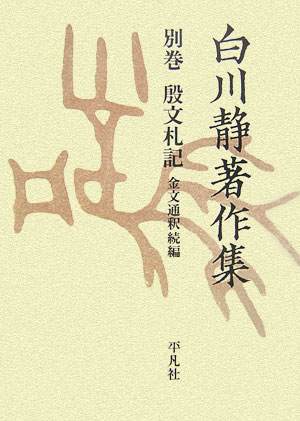 白川静著作集
別巻 殷文札記
金文通釈続編
平凡社